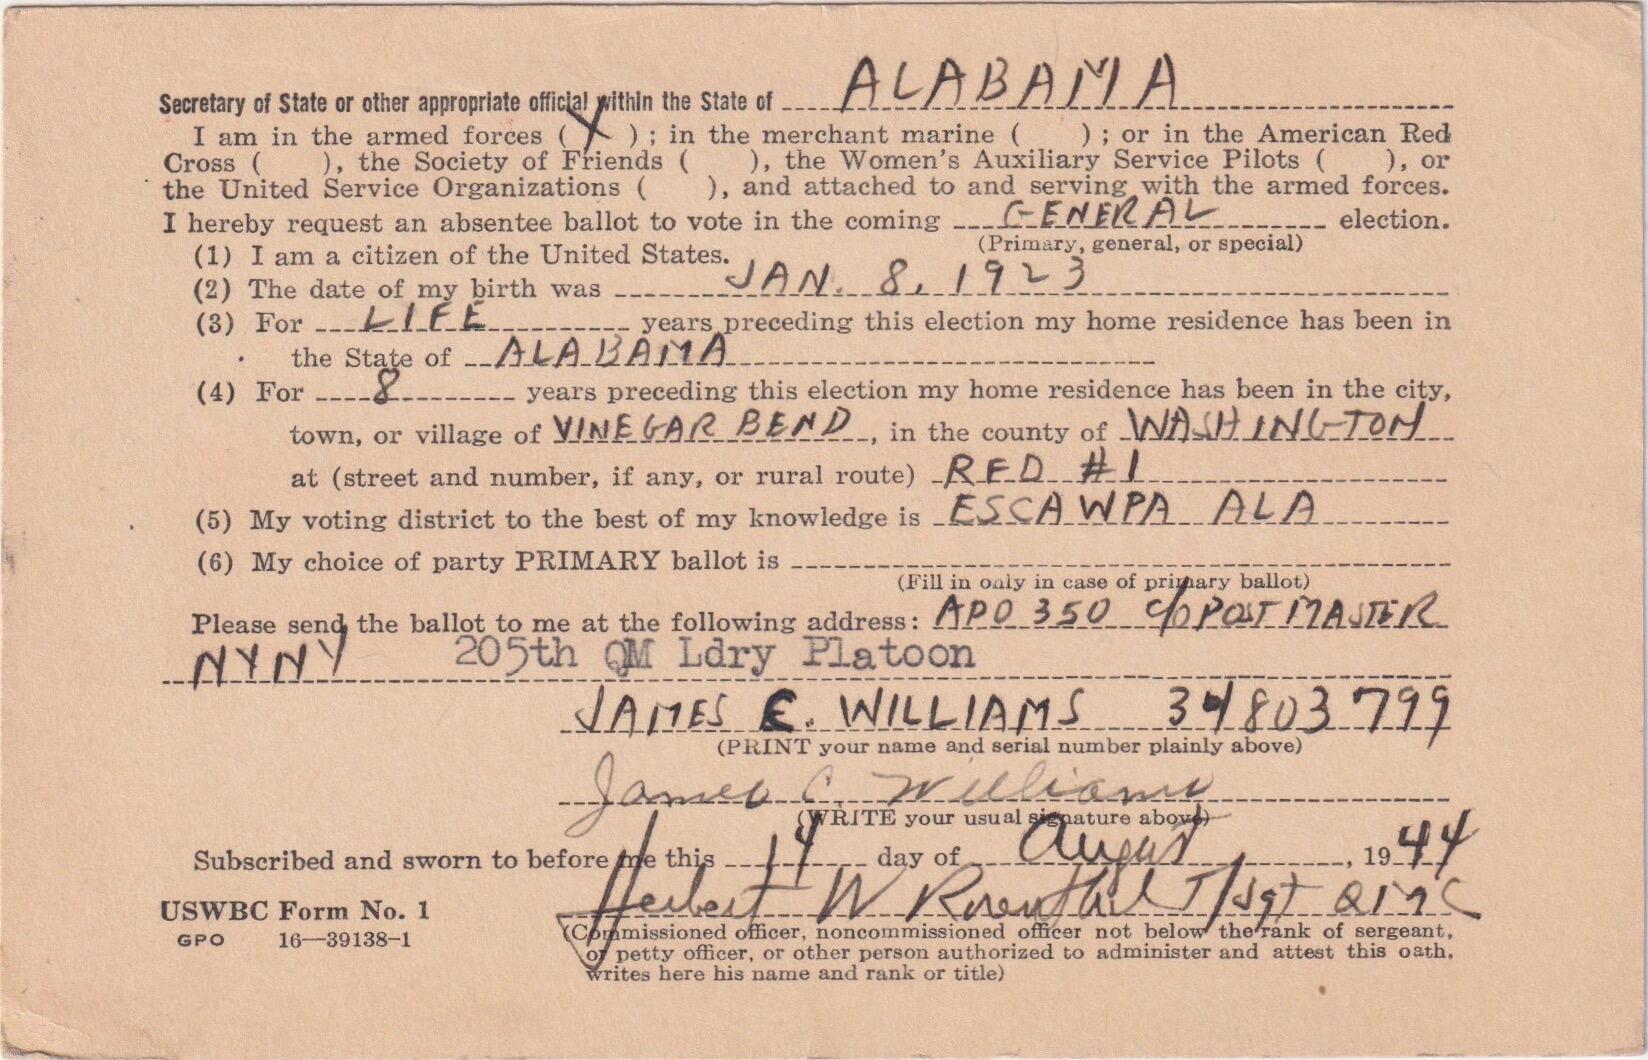 Secretary of State or other appropriate official within the State of ALABAMA
I am in the armed forces ( X ); in the merchant marine ( ); or in the American Red
Cross ( ), the Society of Friends ( ), the Women's Auxiliary Service Pilots ( ), or
the United Service Organizations ( ), and attached to and serving with the armed forces.
I hereby request an absentee ballot to vote in the coming GENERAL election.
(Primary, general, or special)
(1) I am a citizen of the United States.
(2) The date of my birth was JAN. 8, 1923
(3) For LIFE years preceding this election my home residence has been in
the State of ALABAMA
(4) For 8 years preceding this election my home residence has been in the city,
town, or village of VINEGAR BEND, in the county of WASHINGTON
at (street and number, if any, or rural route) RFD #1
(5) My voting district to the best of my knowledge is ESCAWPA ALA
(6) My choice of party PRIMARY ballot is
(Fill in only in case of primary ballot)
Please send the ballot to me at the following address: APO 350 c/o POSTMASTER
NYNY 205th QM Ldry Platoon
JAMES C. WILLIAMS 34803799
(PRINT your name and serial number plainly above)
James C. Williams
(WRITE your usual signature above)
Subscribed and sworn to before me this 14 day of August, 1944
Herbert W Rosenthal T/Sgt QMC
USWBC Form No. 1
GPO 16—39138-1
(Commissioned officer, noncommissioned officer not below the rank of sergeant,
or petty officer, or other person authorized to administer and attest this oath,
writes here his name and rank or title)